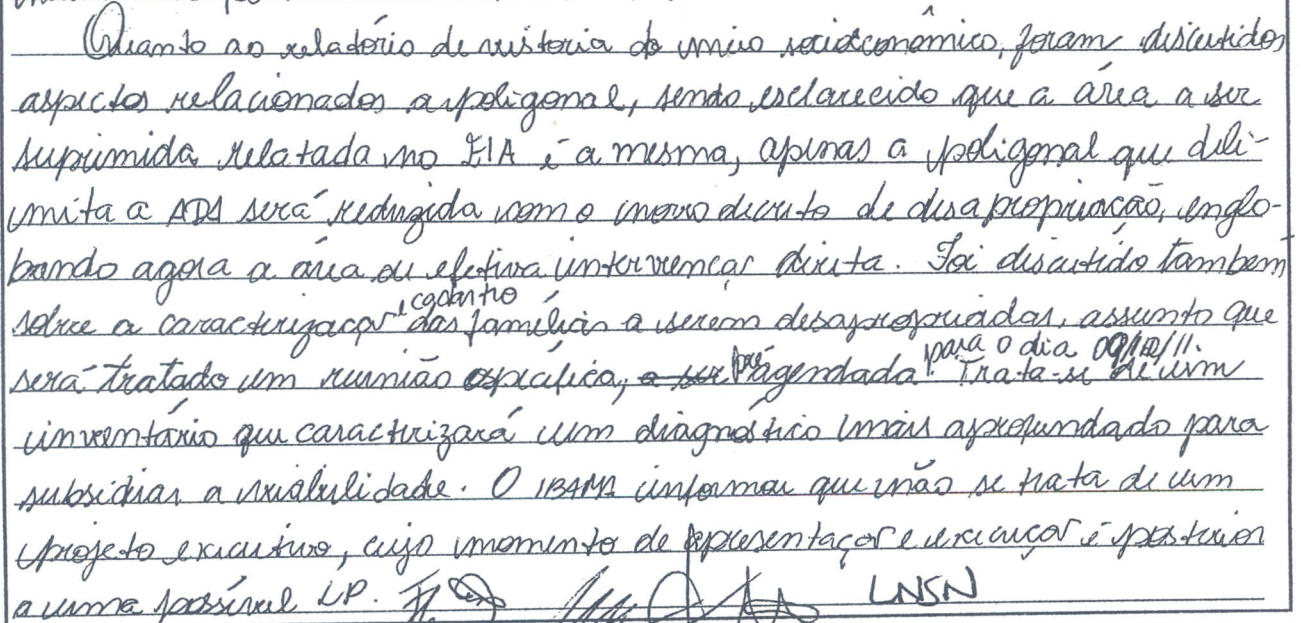 Quanto ao relatório de vistoria do meio socioeconômico, foram discutidos
aspectos relacionados a poligonal, sendo esclarecido que a área a ser
suprimida relatada no EIA é a mesma, apenas a poligonal que deli-
mita a ADA será reduzida com o novo decreto de desapropriação, englo-
bando agora a área de efetiva intervenção direta. Foi discutido também
sobre a caracterização e cadastro das famílias a serem desapropriadas, assunto que
será tratado em reunião específica, a ser pré agendada para o dia Trata-se de um
inventário que caracterizará um diagnóstico mais aprofundado para
subsidiar a viabilidade. O IBAMA informou que não se trata de um
projeto executivo, cujo momento de apresentação e execução é posterior
a uma possível LP. LNSN